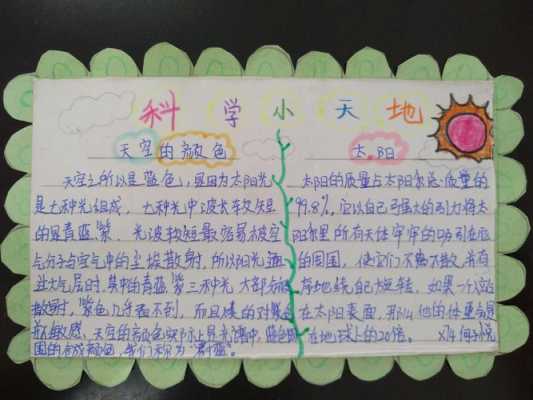 科学小天地
天空的颜色
天空之所以是蓝色,是因为太阳光
是七种光组成,七种光中波长较短
的是青蓝紫,光波较短最容易被空
气分子与空气中的尘埃散射,所以阳光
过大气层时,其中的青蓝紫三种光大部分
散射,紫色几乎看不到,而且
敏感,天空的颜色实际上是光谱中蓝色
围的合成颜色,我们称为"蔚蓝"。
太阳
太阳的质量占太阳系总质量的
99.8%,它以自己强大的引力将太
阳系里所有天体牢牢的吸引在
的周围,使它们不离不散,井有
地绕自己旋转,如果一个
在太阳表面,那么他的体重
在地球上的20倍。